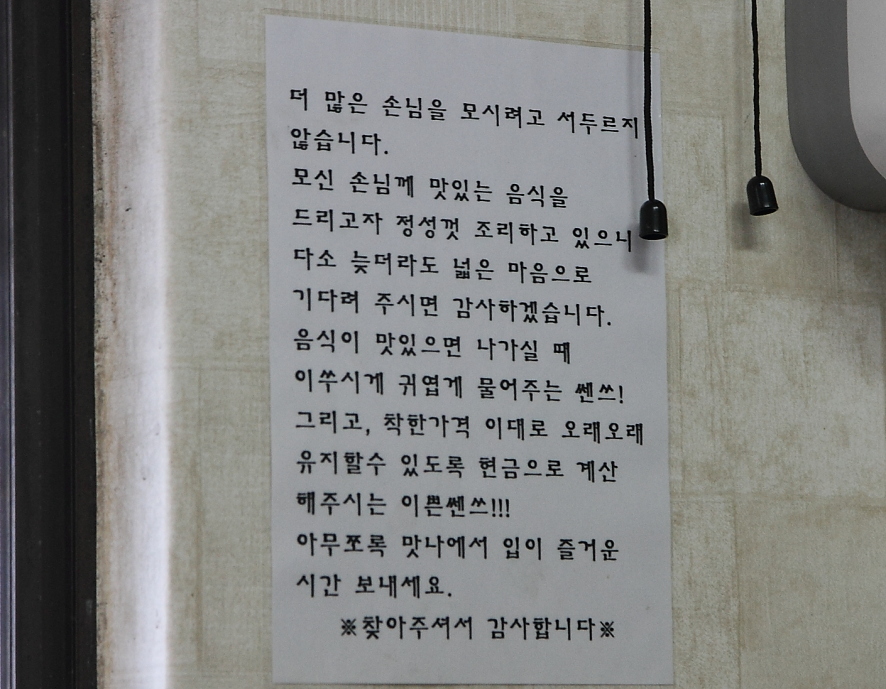 더 많은 손님을 모시려고 서두르지
않습니다.
모신 손님께 맛있는 음식을
드리고자 정성껏 조리하고 있으니
다소 늦더라도 넓은 마음으로
기다려 주시면 감사하겠습니다.
음식이 맛있으면 나가실 때
이쑤시게 귀엽게 물어주는 쎈쓰!
그리고, 착한가격 이대로 오래오래
유지할수 있도록 현금으로 계산
해주시는 이쁜쎈쓰!!!
아무쪼록 맛나에서 입이 즐거운
시간 보내세요.
※찾아주셔서 감사합니다※